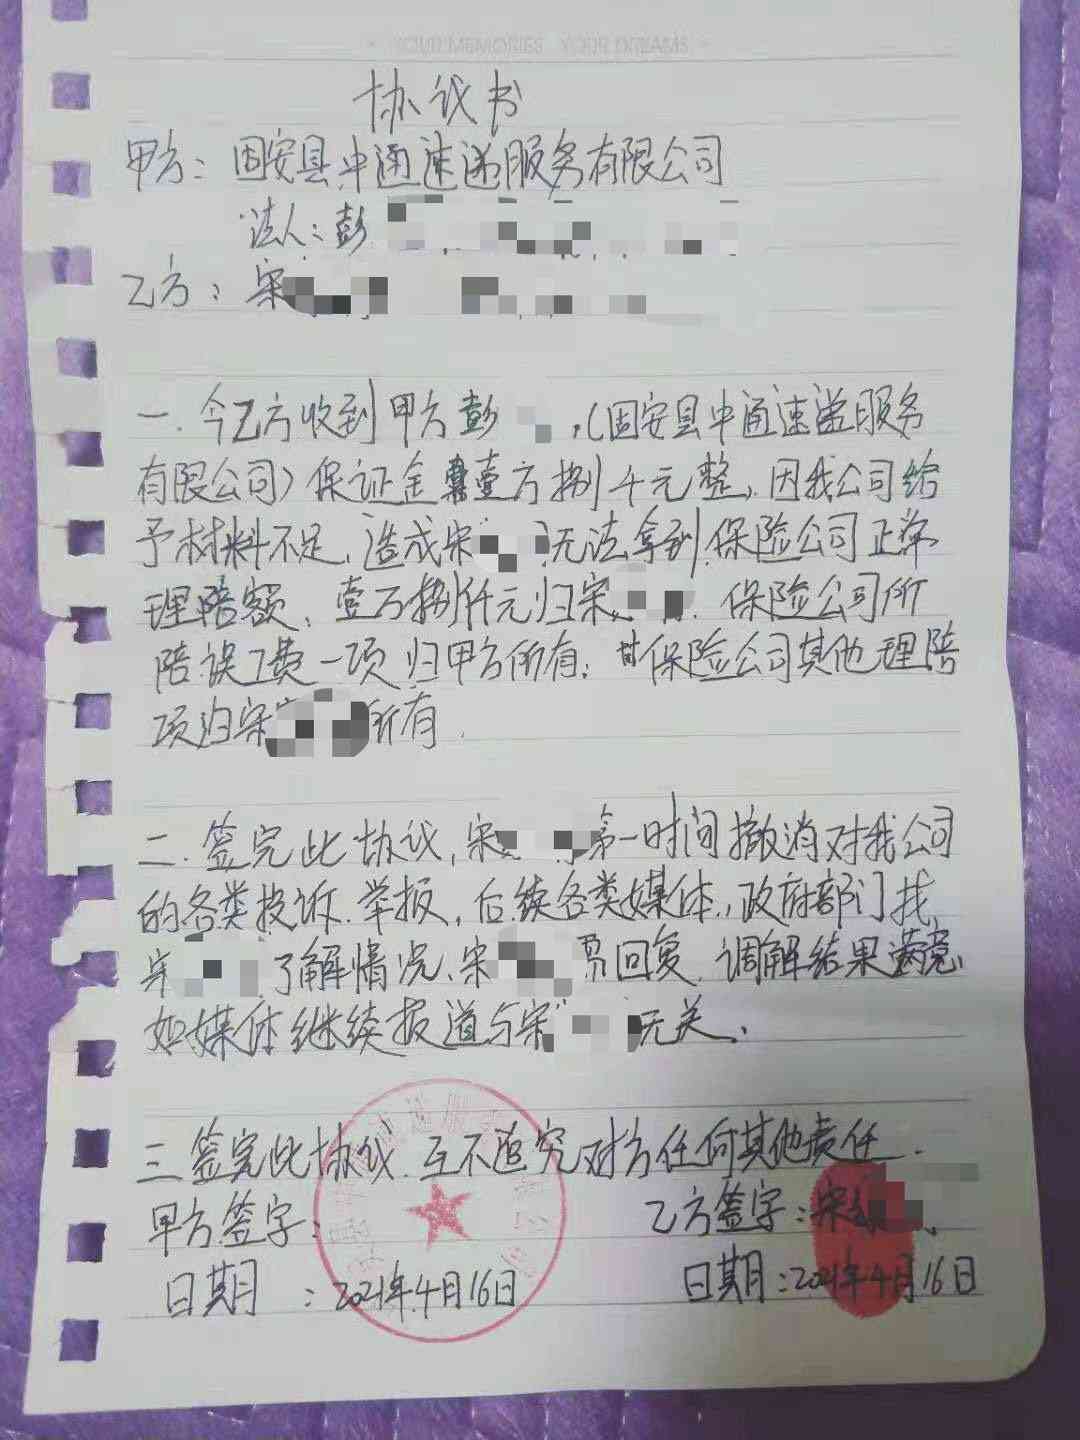 YOUR MEMORIES YOUR DREAMS
协议书
甲方：固安县中通速递服务有限公司
法人：彭
乙方：宋
一.今乙方收到甲方彭，(固安县中通速递服务
有限公司)保证金壹万捌千元整，因我公司给
予材料不足，造成宋无法拿到保险公司正常
理陪额，壹万捌仟元归宋，保险公司所
陪误工费一项归甲方所有；保险公司其他理陪
项归宋所有.
二.签完此协议,宋第一时间撤消对我公司
的各类投诉.举报,后续各类媒体,政府部门找
宋了解情况,宋回复,调解结果满意,
如媒体继续报道与宋无关.
三.签完此协议.互不追究对方任何其他责任.
甲方签字：
乙方签字：宋
日期：2021年4月16日
日期：2021年4月16日